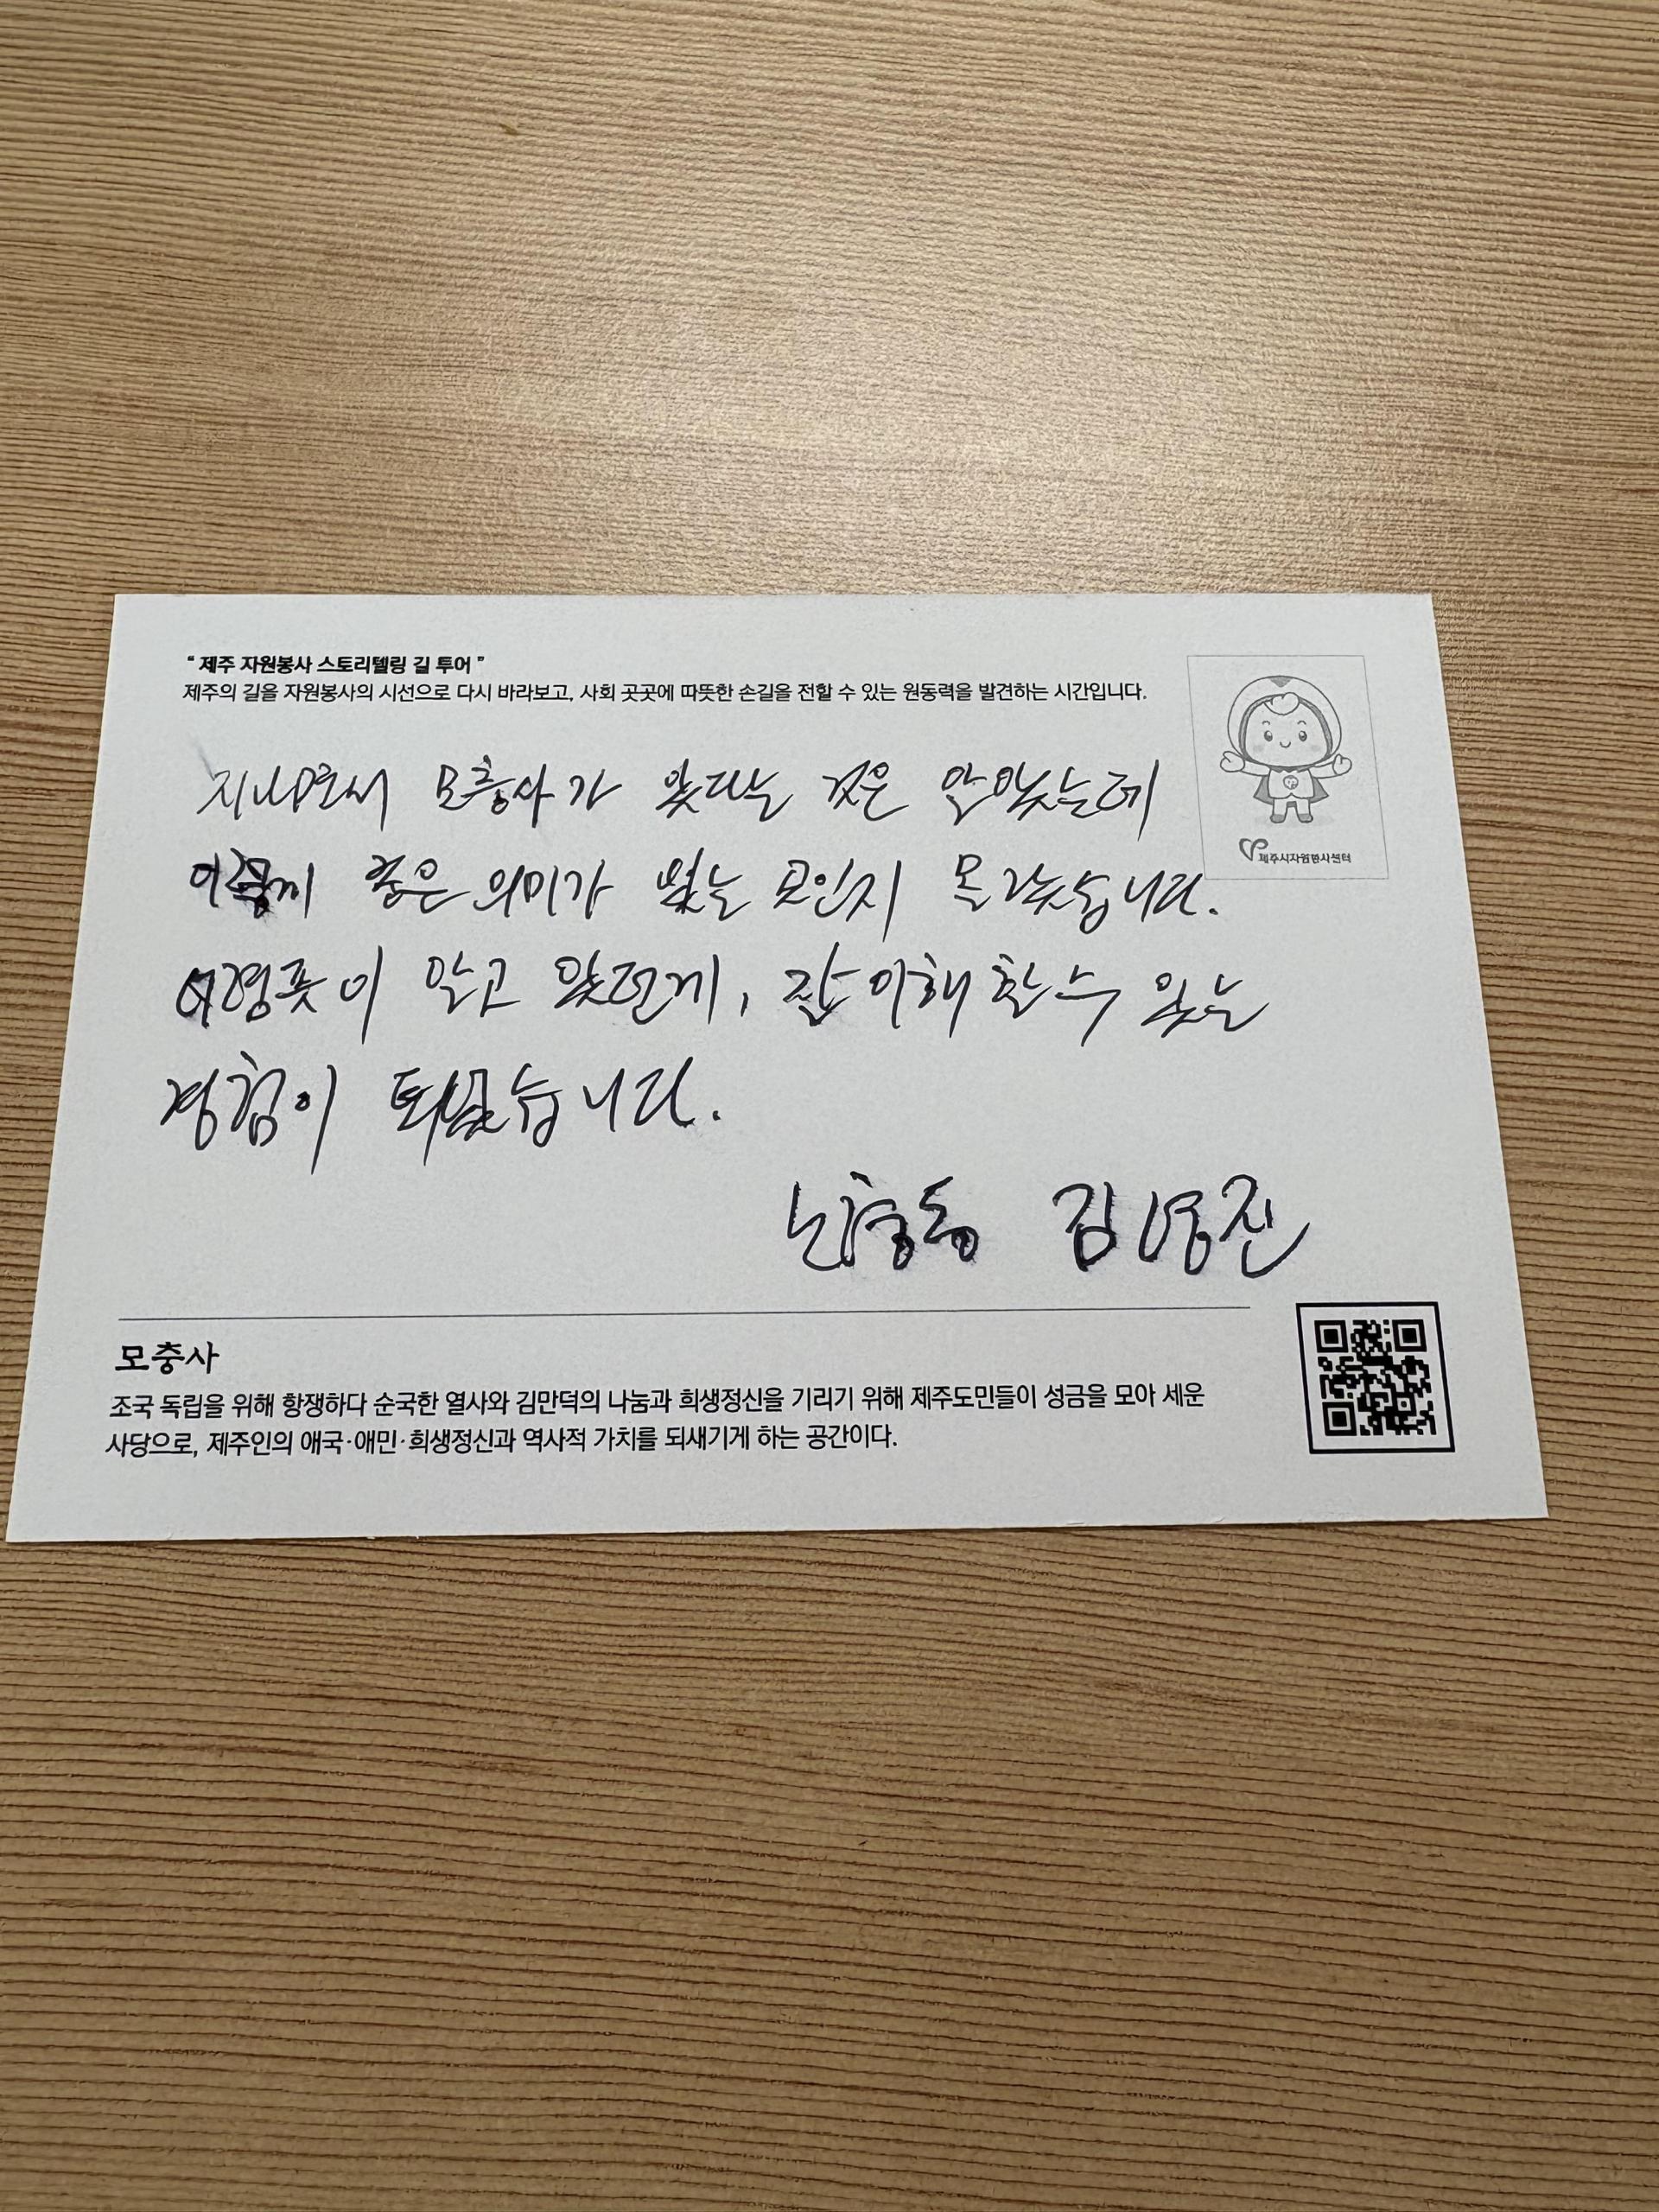 " 제주 자원봉사 스토리텔링 길 투어 "
제주의 길을 자원봉사의 시선으로 다시 바라보고, 사회 곳곳에 따뜻한 손길을 전할 수 있는 원동력을 발견하는 시간입니다.
제주시자원봉사센터
지나면서 모충사가 있다는 것은 알았는데
이렇게 좋은 의미가 있는 곳인지 몰랐습니다.
이 알고 있던게, 잘 이해할 수 있는
경험이 되었습니다.
김영진
모충사
조국 독립을 위해 항쟁하다 순국한 열사와 김만덕의 나눔과 희생정신을 기리기 위해 제주도민들이 성금을 모아 세운
사당으로, 제주인의 애국·애민·희생정신과 역사적 가치를 되새기게 하는 공간이다.